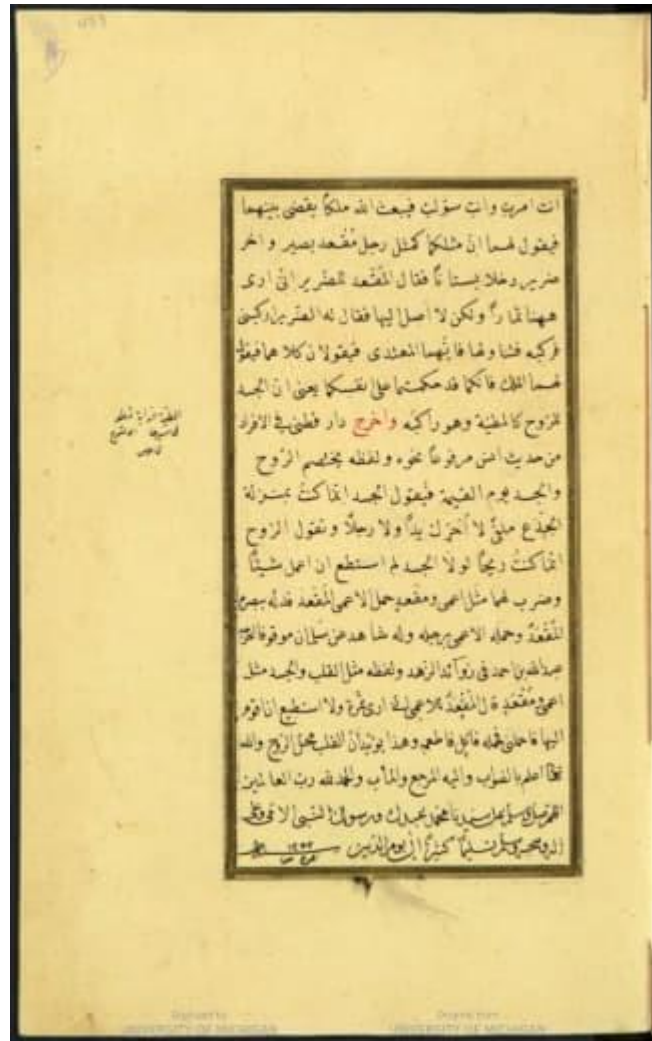 انت امرت وانت سولت فيبعث الله ملكا يقضى بينهما
فيقول لهما ان مثلكما كمثل رجل مُقعد بصير واخر
ضرير دخلا بستانا فقال المُقعد للضرير انى ارى
ههنا ثمارًا ولكن لا اصل اليها فقال له الضرير اركبنى
فركبه فتناولها فايهما المعتدى فيقولان كلاهما فيقول
لهما الملك فانكما قد حكمتما على نفسكما يعنى ان الجسد
للروح كالمطية وهو راكبه واخرج دار قطنى فى الافراد
من حديث انس مرفوعًا نحوه ولفظه يختصم الروح
والجسد يوم القيمة فيقول الجسد انما كنتُ بمنزلة
الجذع ملقىً لا احرك يدًا ولا رجلًا وتقول الروح
انما كنتُ ريحًا لولا الجسد لم استطع ان اعمل شيئًا
وضرب لهما مثل اعمى ومقعدٍ حمل الاعمى المقعد فدله ببصره
المُقْعَدُ وحمله الاعمى برجله وله شاهد عن سلمان موقوفا اخرجه
عبدالله بن احمد فى زوآئد الزهد ولفظه مثل القلب والجسد مثل
اعمى ومُقْعَدٍ قال المُقْعَدُ للاعمى انى ارى ثمرة ولا استطيع ان اقوم
اليها فاحملنى فحمله فاكل فاطعمه وهذا يؤيد ان القلب محل الروح والله
اعلم بالصواب واليه المرجع والمآب والحمدلله ربّ العالمين
اللهم صل وسلم على سيدنا محمد عبدك ورسولك النبى الامى وعلى
اله وصحبه وسلم تسليمًا كثيرًا الى يوم الدين
Digitized by
UNIVERSITY OF MICHIGAN
Original from
UNIVERSITY OF MICHIGAN